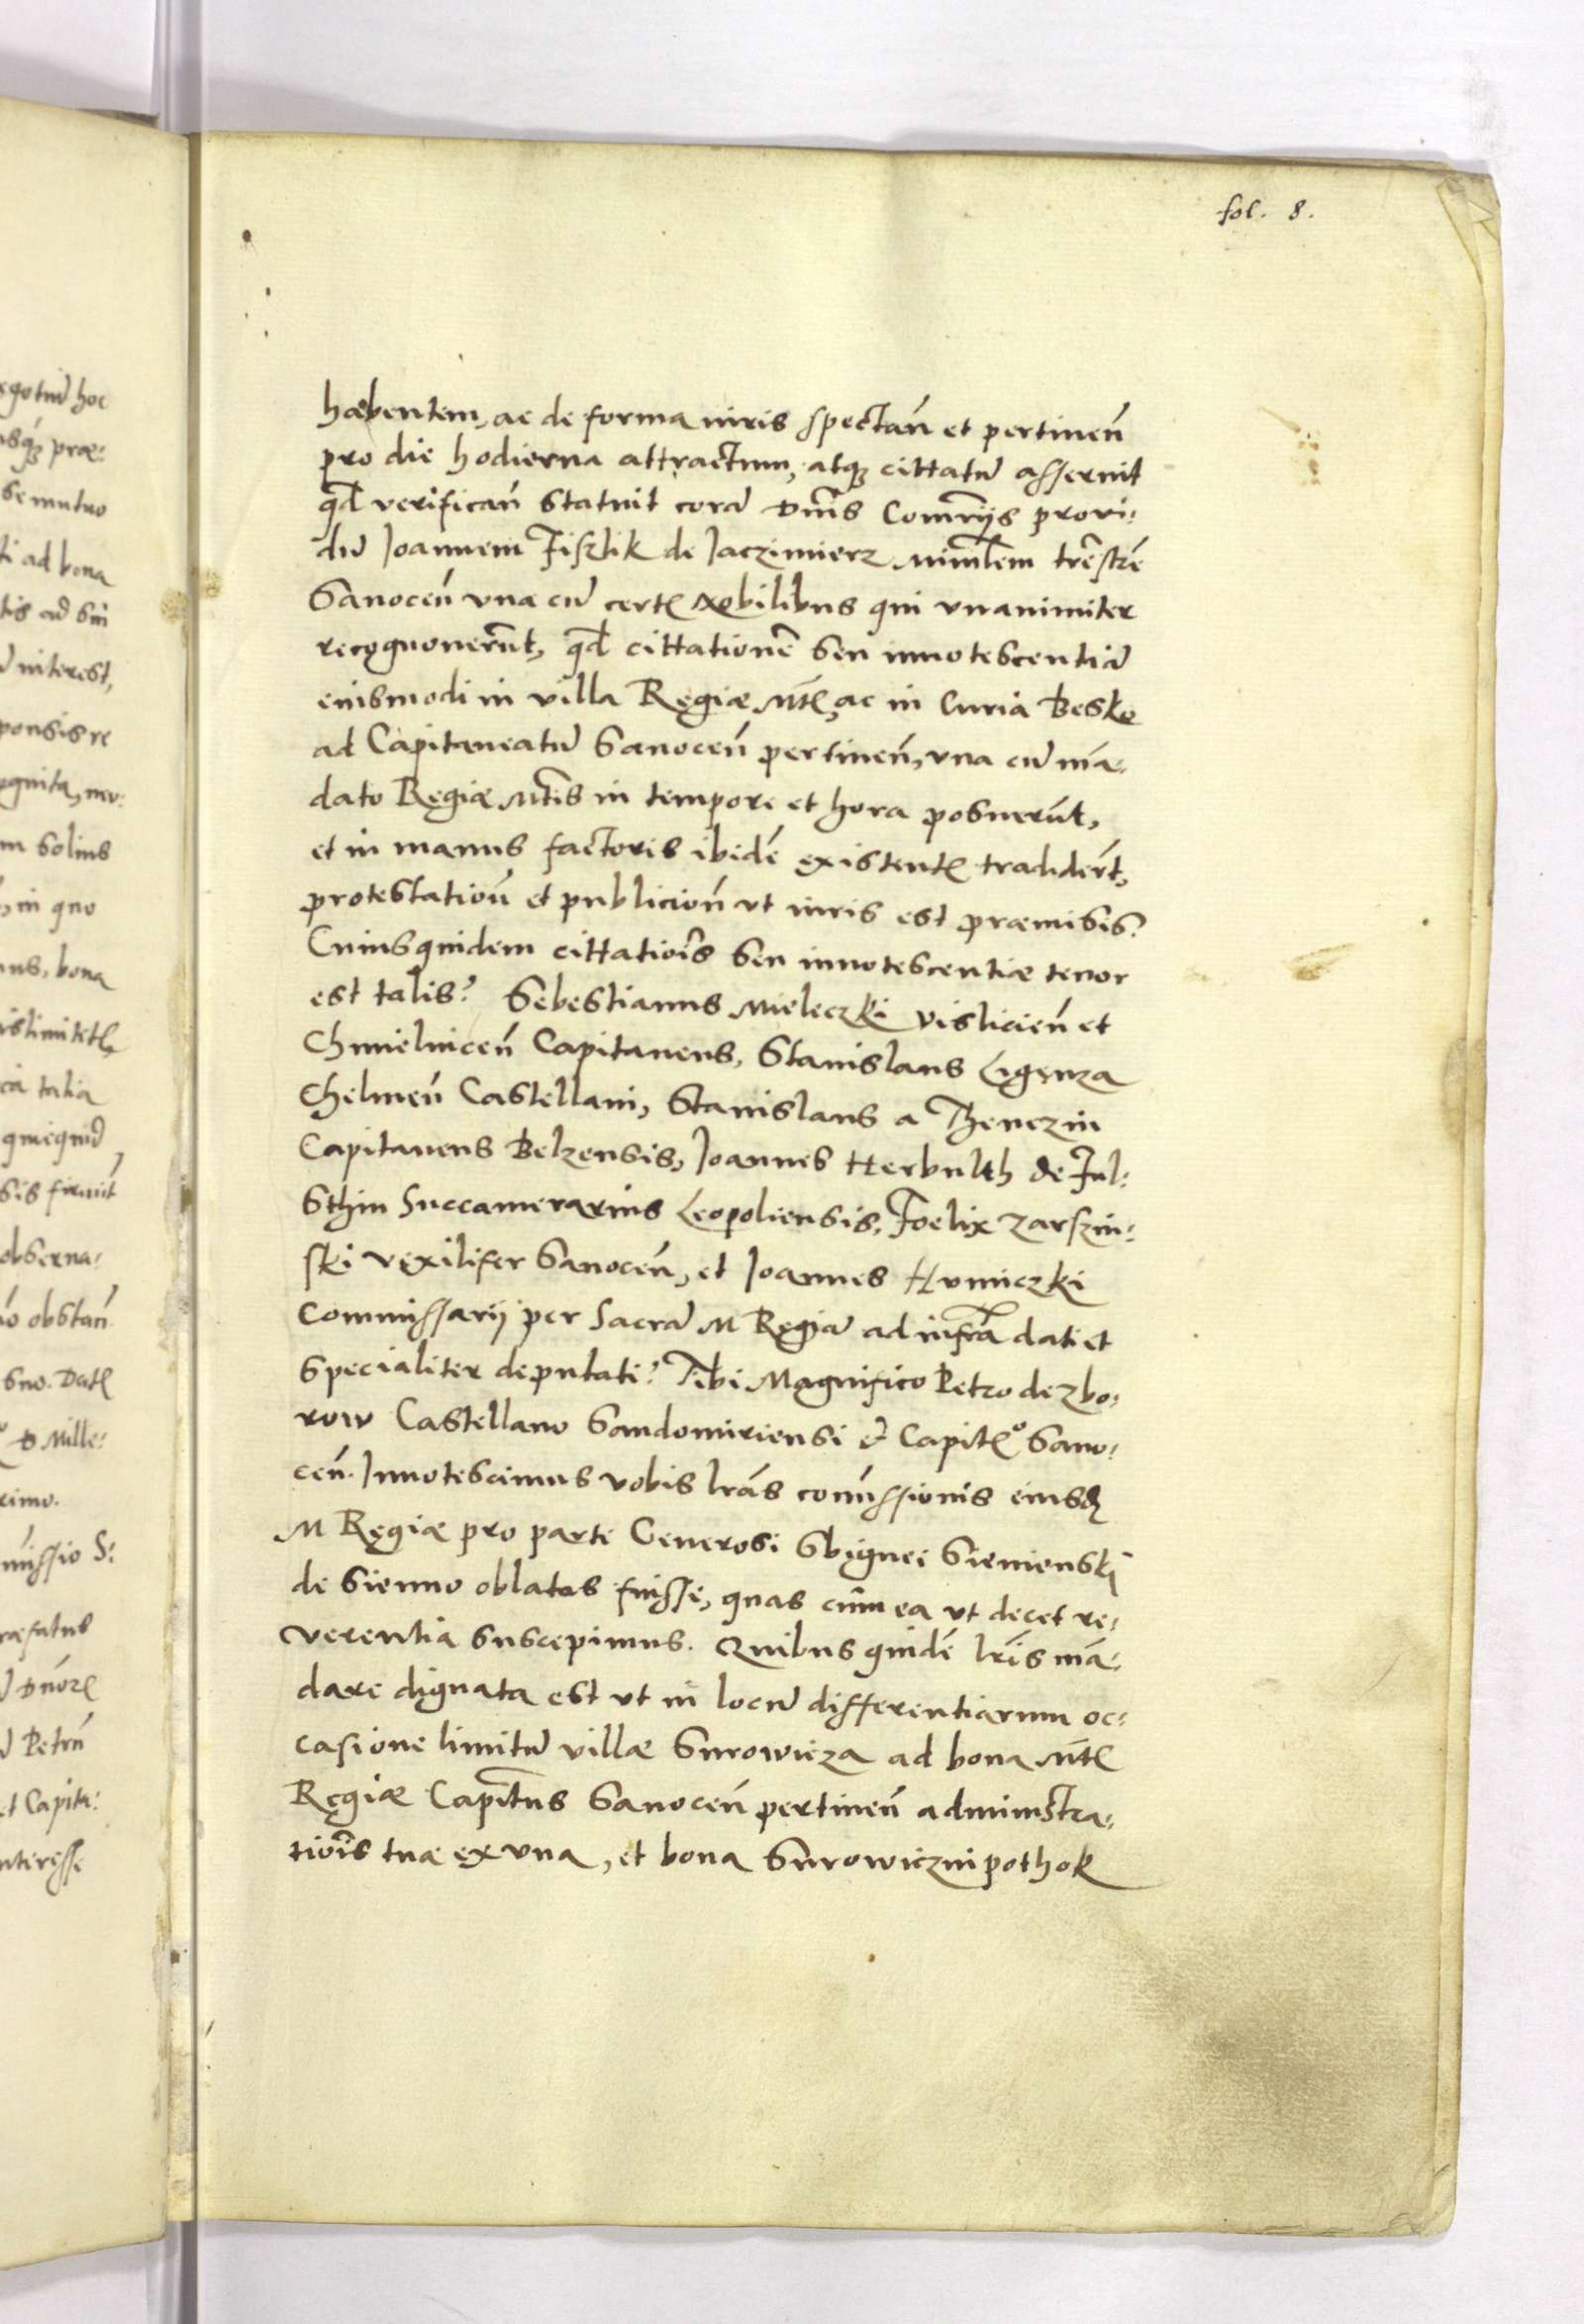 fol. 8.
habentem, ac de forma iuris spectan̄ et pertinen̄
pro die hodierna attractum, atq3 cittatū asseruit
qd̄ verifican̄ statuit corā Dn̄is Com̄rijs provi:
dū Joannem Fisztik de Jaczimierz minrlem trestrē
Sanocen̄ una cū certꝭ nobilibus qui unanimiter
recognouerūt, qd̄ cittationē seu innotescentiā
eiusmodi in villa Regiæ Mtꝭ, ac in Curia Besko
ad Capitaneatū Sanocen̄ pertinen̄, una cū mā:
dato Regiæ Mtis in tempore et hora posuerūt,
et in manus factoris ibidē existentꝭ tradiderūt,
protestation̄ et publicion̄ ut iuris est præmisis?
Cuius quidem cittatiōis seu innotescentiæ tenor
est talis? Sebestianus Mieleczki Vislicien̄ et
Chmielnicen̄ Capitaneus, Stanislaus Ligenza
Chelmen̄ Castellani, Stanislaus a Thenczin
Capitaneus Belzensis, Joannes Herbulth de Ful:
sthin Succamerarius Leopoliensis, Foelix Zarszin:
ski Vexilifer Sanocen̄, et Joannes Humiczki
Commissarij per Sacrā M Regiā ad infra dati et
specialiter deputati? Tibi Magnifico Petro de Zbo:
row Castellano Sandomiriensi & Capitꝭº Sano:
cen̄. Innotescimus vobis lrās com̄issionis eiusdꝫ
M Regiæ pro parte Generosi Sbignei Sienienskj
de Sienno oblatas fuisse, quas cum ea ut decet re:
verentia suscepimus. Quibus quidē lrīs mā:
dare dignata est ut in locū differentiarum oc:
casione limitū villæ Surowicza ad bona Mtꝭ
Regiæ Capitus Sanocen̄ pertinen̄ administra:
tiōis tuæ ex una, et bona Surowiczni pothok
gotiū hoc
præ:
se mutuo
ti ad bona
interest,
ponsis re
solius
in quo
bona
talia
quicquid
obserua:
obstan̄
suo. Datꝭ
D Mille:
missio S:
ræfatus
Petrū
et Capita:
nteresse